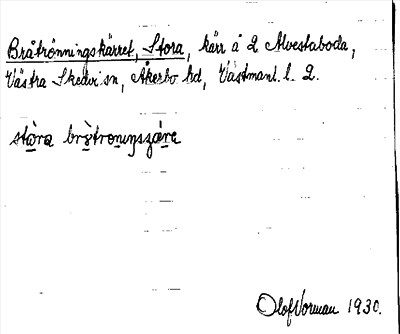 Bråtrönningskärret, Stora, kärr å 2 Alvestaboda,
Västra Skedvi sn, Åkerbo hd, Västmanl. l. 2.
stòra
Olof Norman 1930.